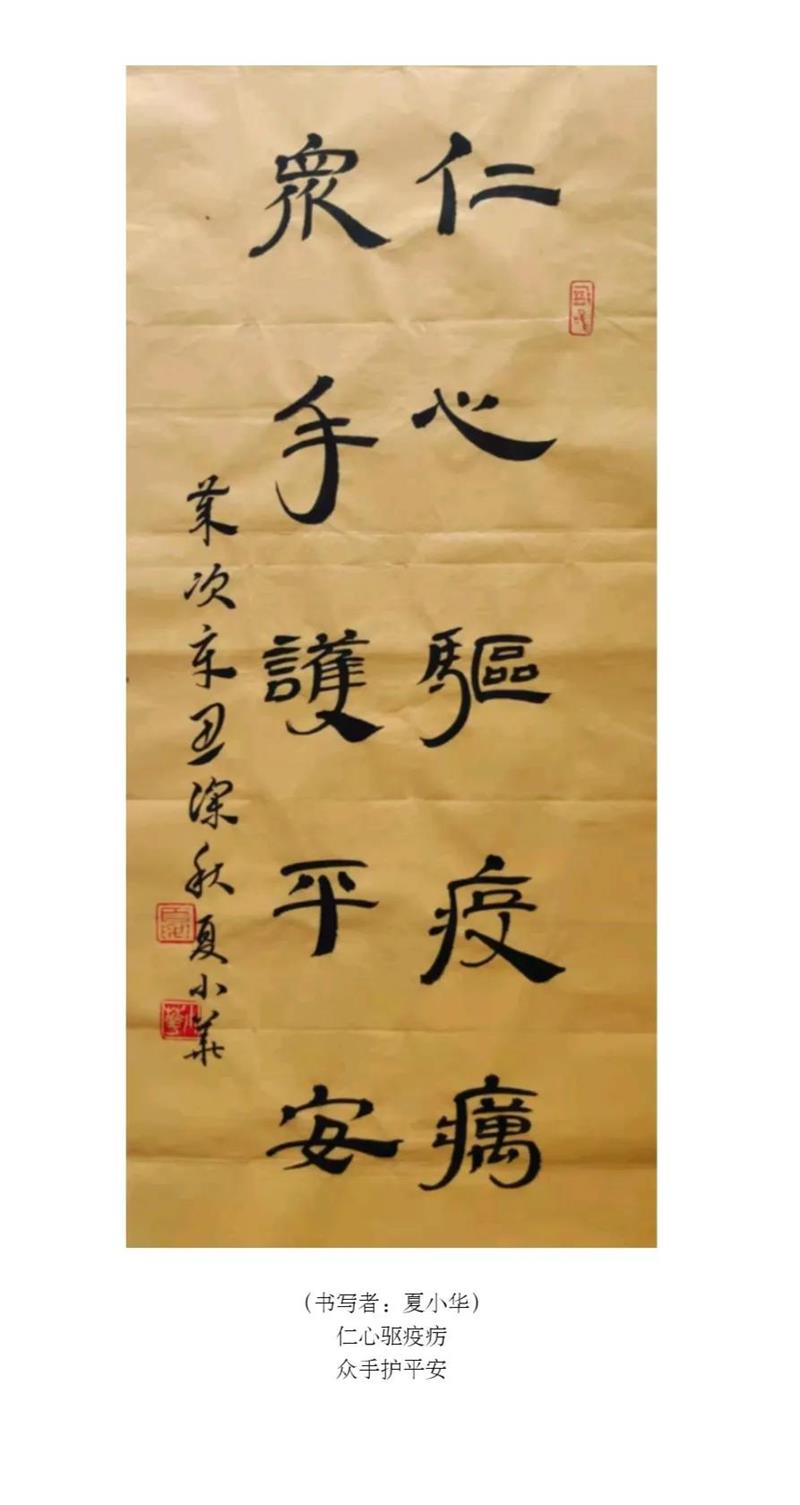 仁心驅疫癘
眾手護平安
歲次辛丑深秋夏小華
（书写者：夏小华）
仁心驱疫疠
众手护平安